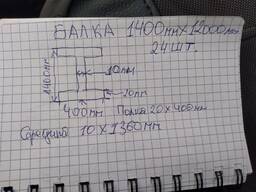 БАЛКА 1400мм х 12000мм
24 ШТ.
1400мм
10мм
20мм
400мм Полка 20 х 400мм
Середина 10 х 1360мм